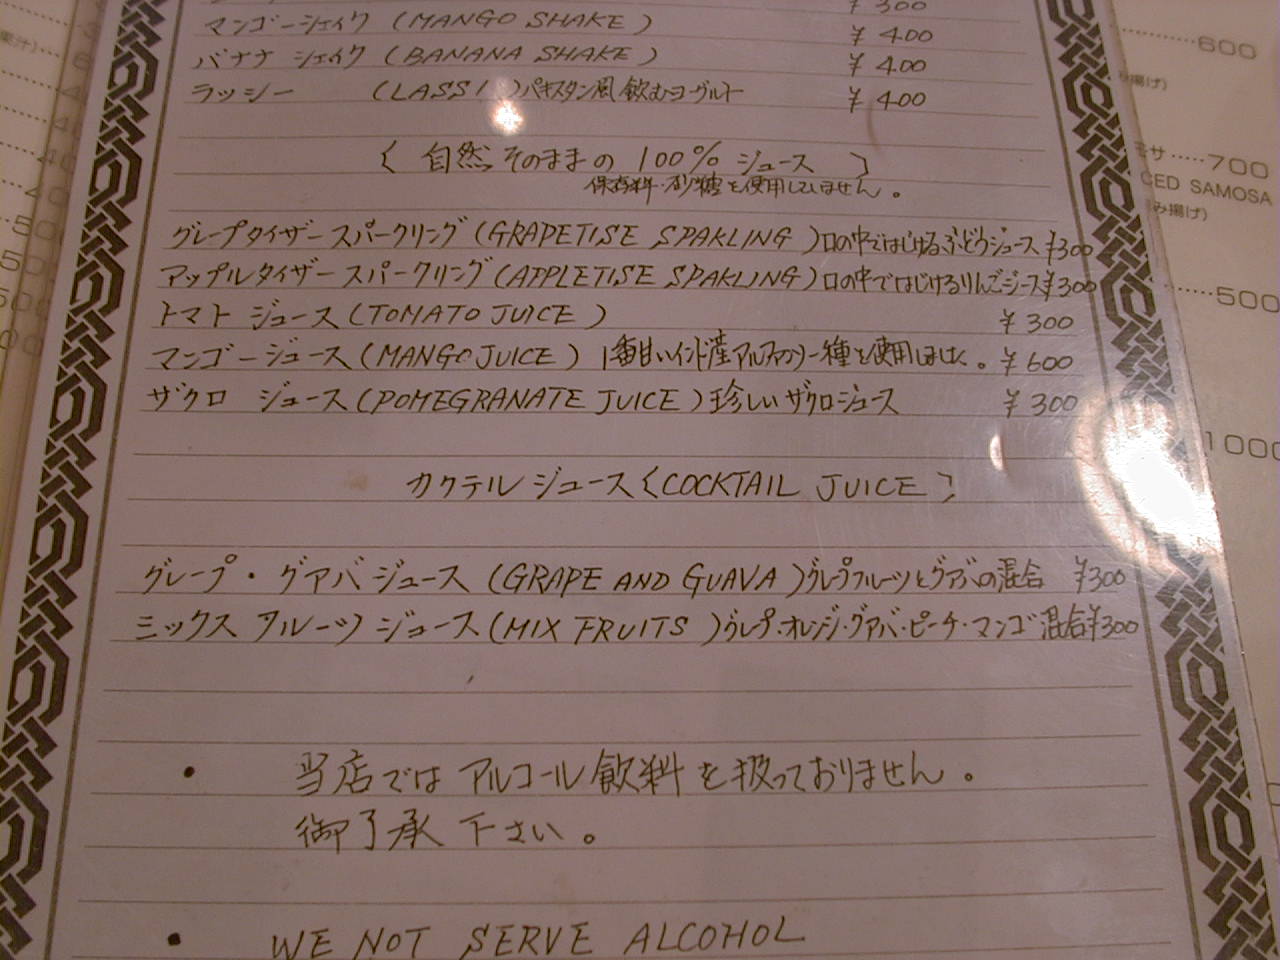 ¥ 300
マンゴーシェイク (MANGO SHAKE) ¥ 400
バナナ シェイク (BANANA SHAKE) ¥ 400
ラッシー (LASSI) パキスタン風飲むヨーグルト ¥ 400
〔 自然そのままの 100% ジュース 〕
保存料・砂糖を使用していません。
グレープタイザー スパークリング (GRAPETISE SPAKLING) 口の中ではじけるぶどうジュース ¥300
アップルタイザー スパークリング (APPLETISE SPAKLING) 口の中ではじけるりんごジュース ¥300
トマト ジュース (TOMATO JUICE) ¥ 300
マンゴージュース (MANGO JUICE) 1番甘いインド産アルファンソー種を使用しました。 ¥ 600
ザクロ ジュース (POMEGRANATE JUICE) 珍しいザクロジュース ¥ 300
カクテル ジュース 〔COCKTAIL JUICE〕
グレープ・グアバ ジュース (GRAPE AND GUAVA) グレープフルーツとグアバの混合 ¥300
ミックス フルーツ ジュース (MIX FRUITS) グレープ・オレンジ・グアバ・ピーチ・マンゴ 混合 ¥300
• 当店では アルコール飲料を扱っておりません。
御了承 下さい。
• WE NOT SERVE ALCOHOL
600
み揚げ)
モサ……700
CED SAMOSA
み揚げ)
……500
1000
果汁)…